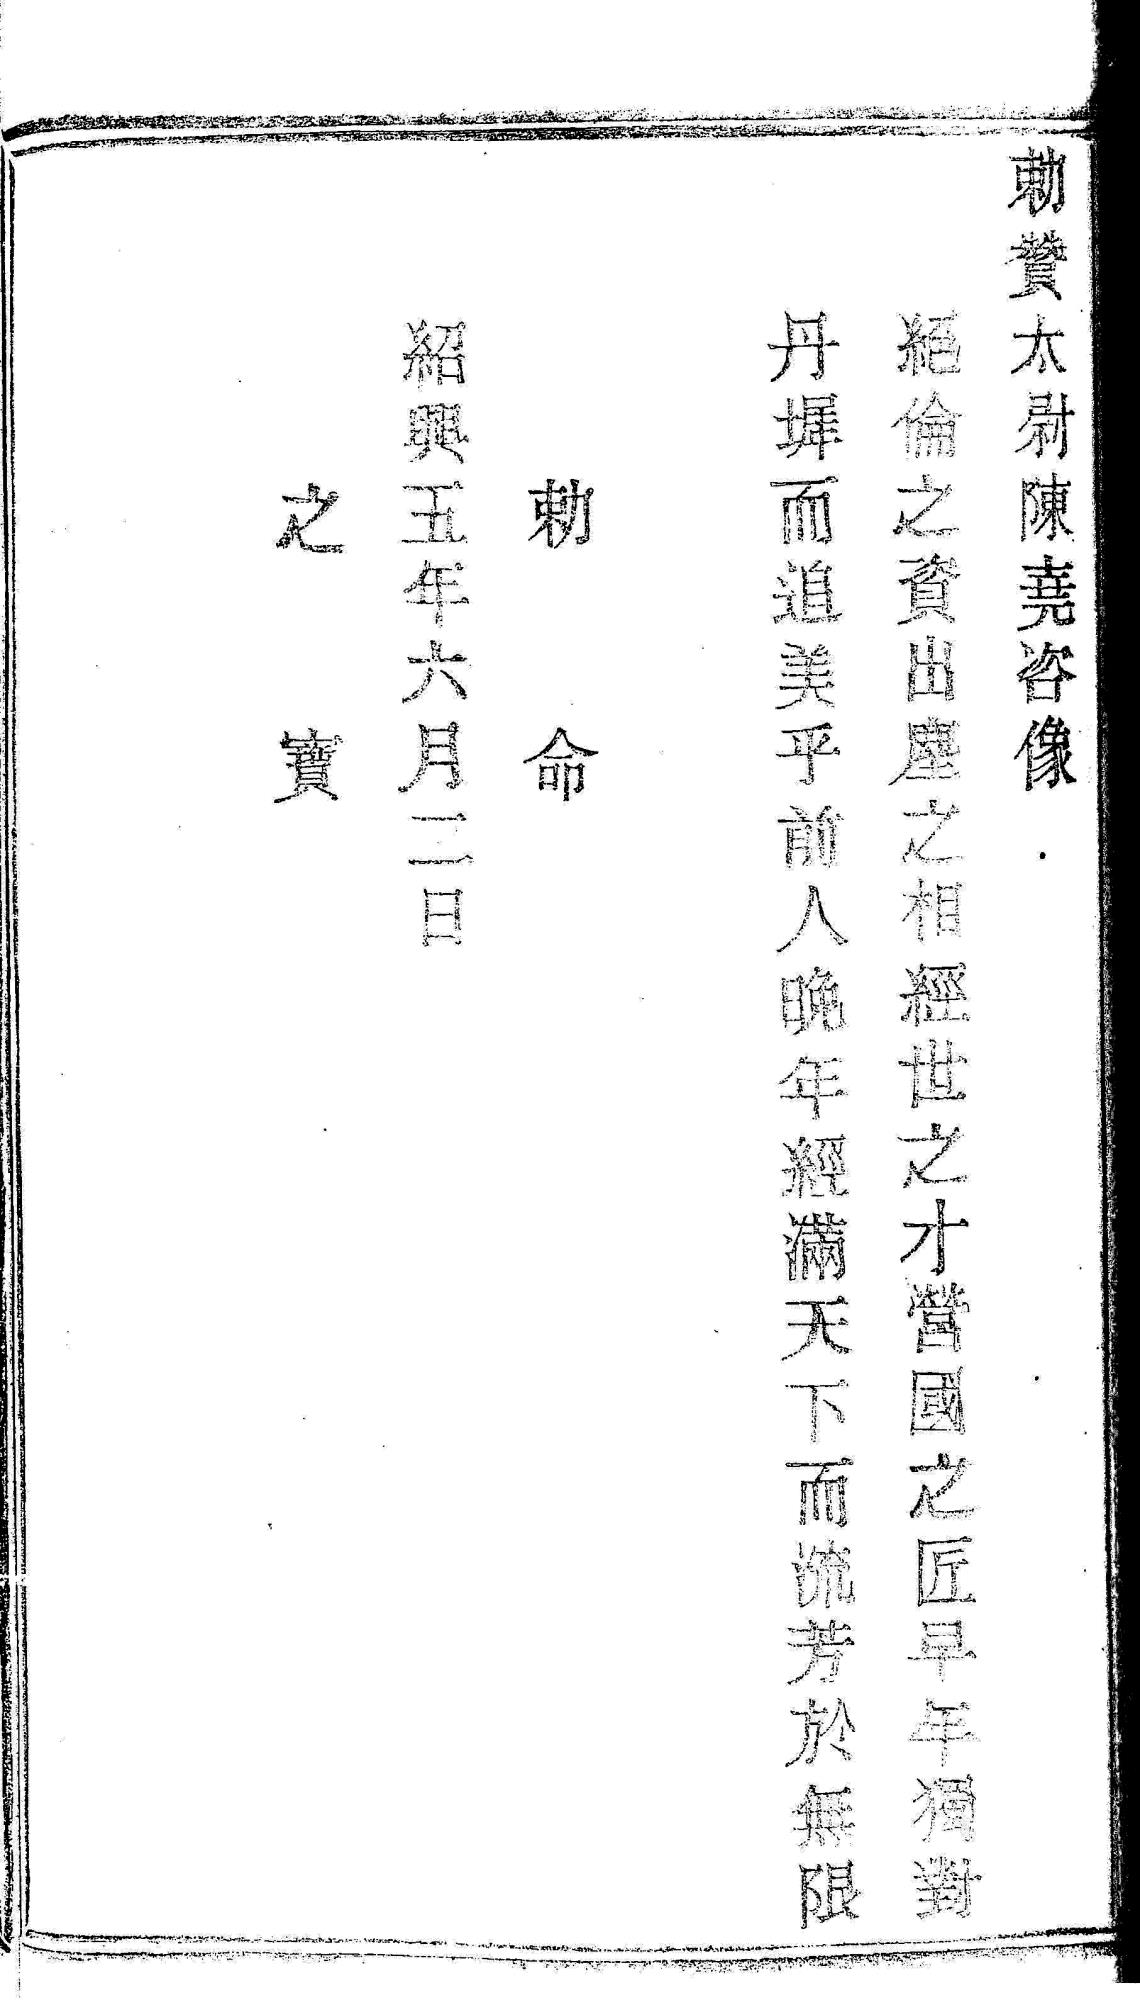 勅贊太尉陳堯咨像
絕倫之資出塵之相經世之才營國之匠早年獨對
丹墀而追美乎前人晚年經滿天下而流芳於無限
勅命
紹興五年六月二日
之寶